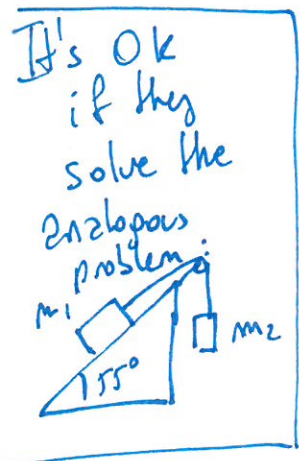 It's Ok
if they
solve the
analogous
problem:
m1
m2
55°